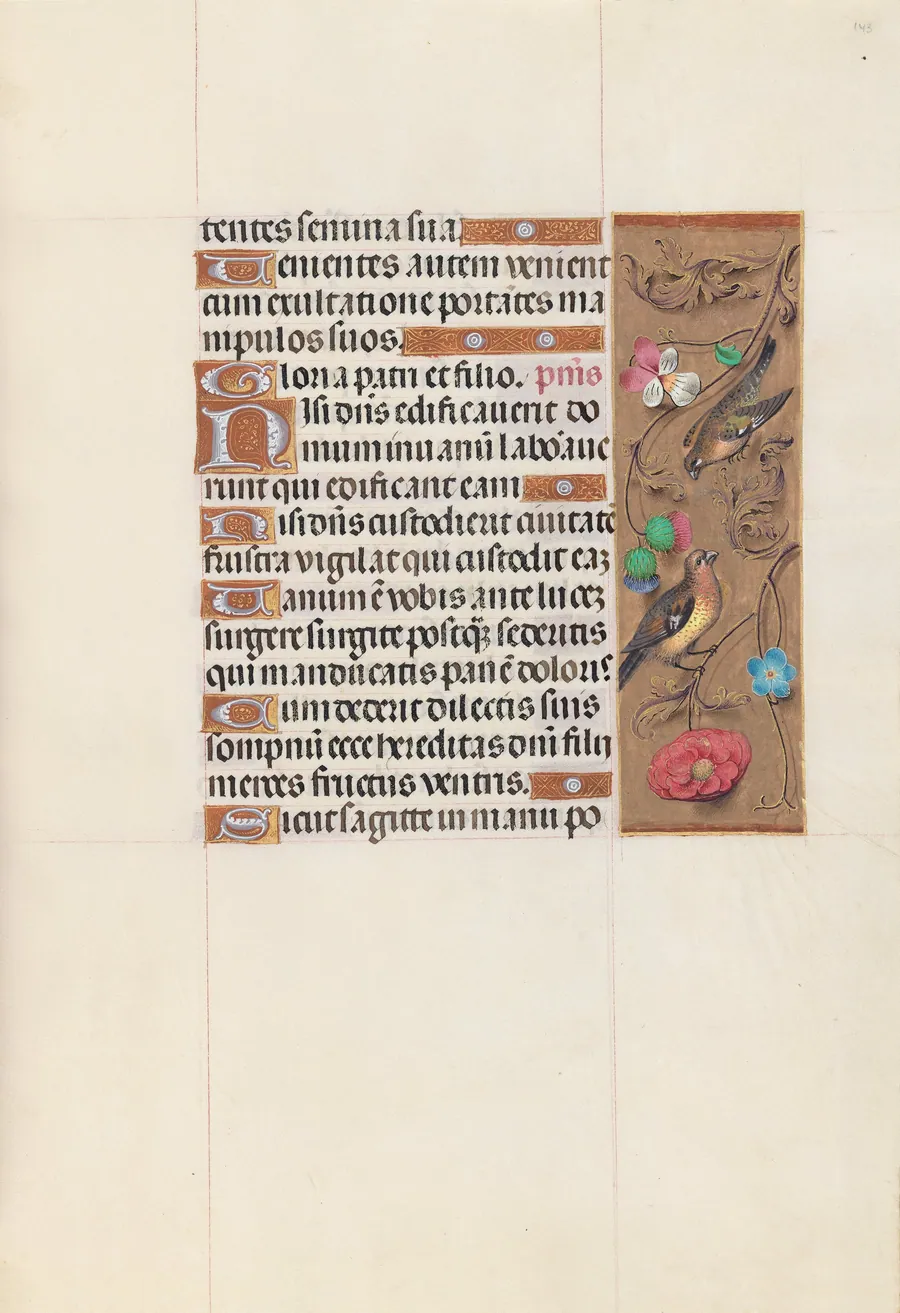 143
tentes semina sua.
Uenientes autem venient
cum exultatione portātes ma
nipulos suos.
Gloria patri et filio. pm̄s
Nisi dn̄s edificauerit do
mum in uanū laboraue
runt qui edificant eam
Nisi dn̄s custodierit ciuitatē
frustra vigilat qui custodit eaʒ
Uanum ē vobis ante luceʒ
surgere surgite postq̄ʒ sederitis
qui manducatis panē doloris
Cum dederit dilectis suis
sompnū ecce hereditas dn̄i filii
merces fructus ventris.
Sicut sagitte in manu po